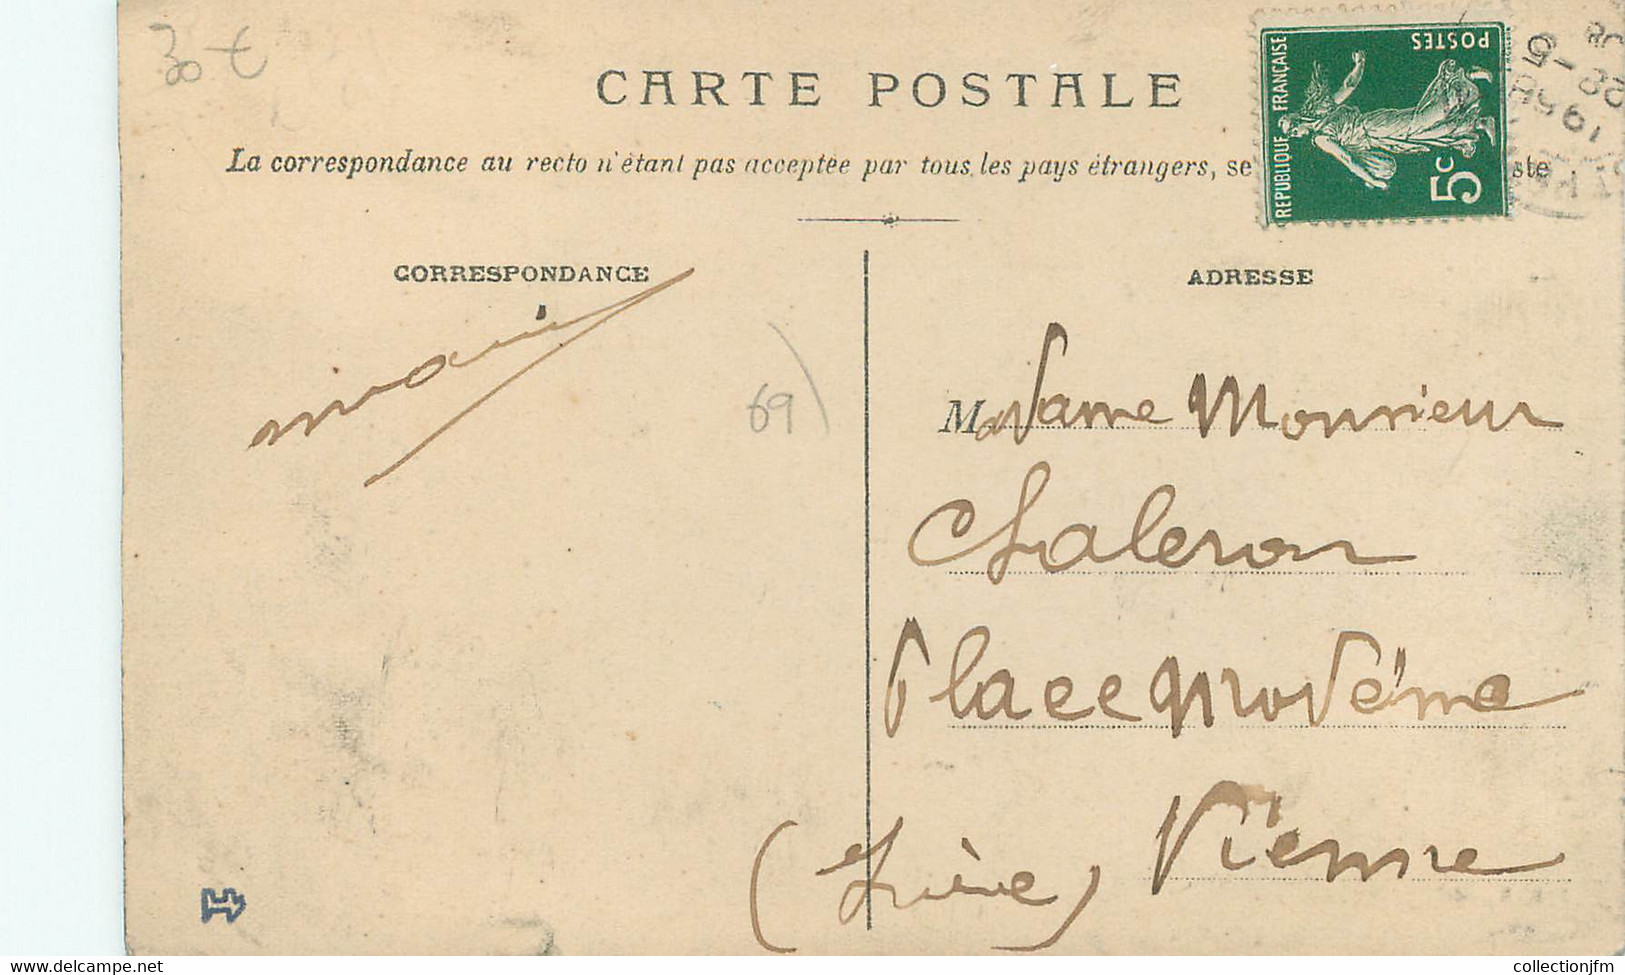 30 €
CARTE POSTALE
La correspondance au recto n'étant pas acceptée par tous les pays étrangers, se
ste
POSTES
RÉPUBLIQUE FRANÇAISE
5c
CORRESPONDANCE
ADRESSE
69
Madame Monsieur
Chaleron
Place Modème
Vienne
(Isère)
collectionjfm